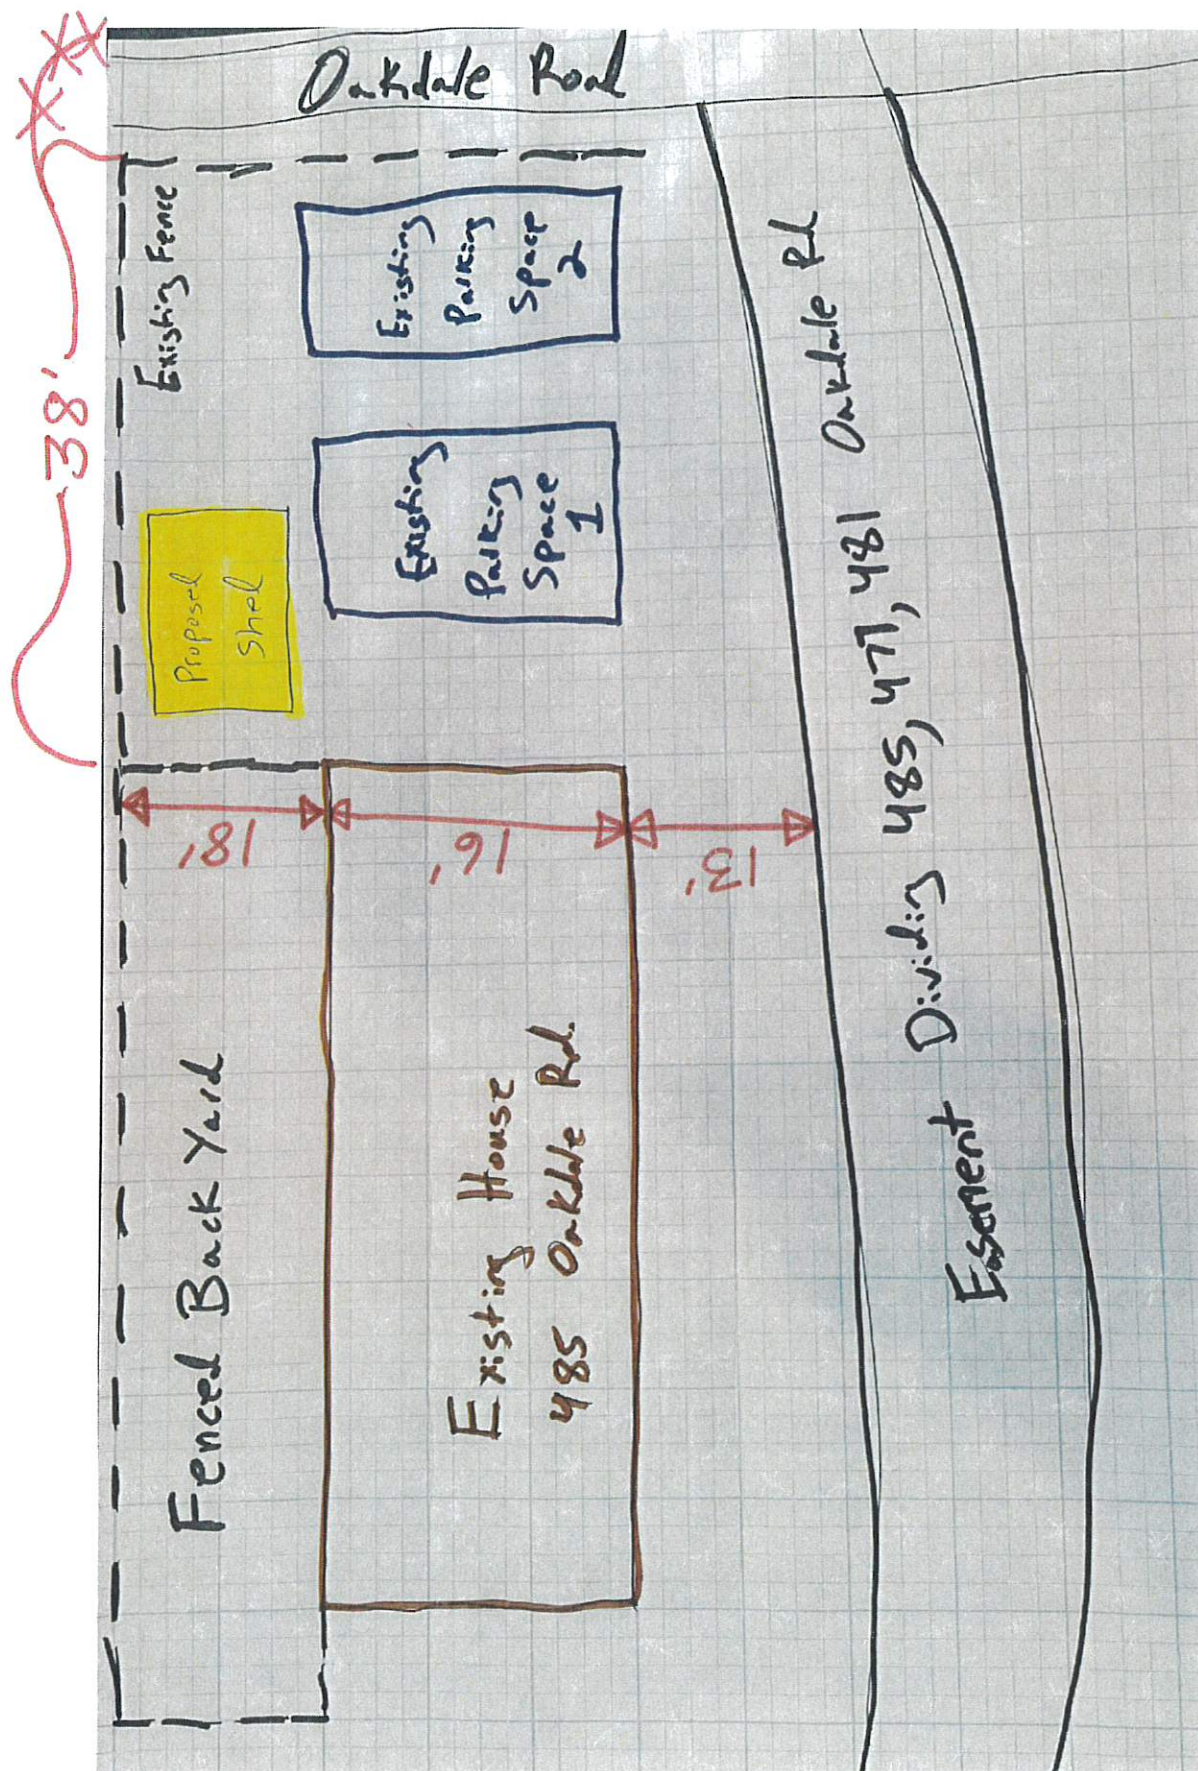 Oakdale Road
Existing Fence
Existing
Parking
Space
2
Existing
Parking
Space
1
38'
Proposed
Shed
18'
16'
13'
Fenced Back Yard
Existing House
485 Oakdale Rd.
Easement Dividing 485, 477, 481 Oakdale Rd